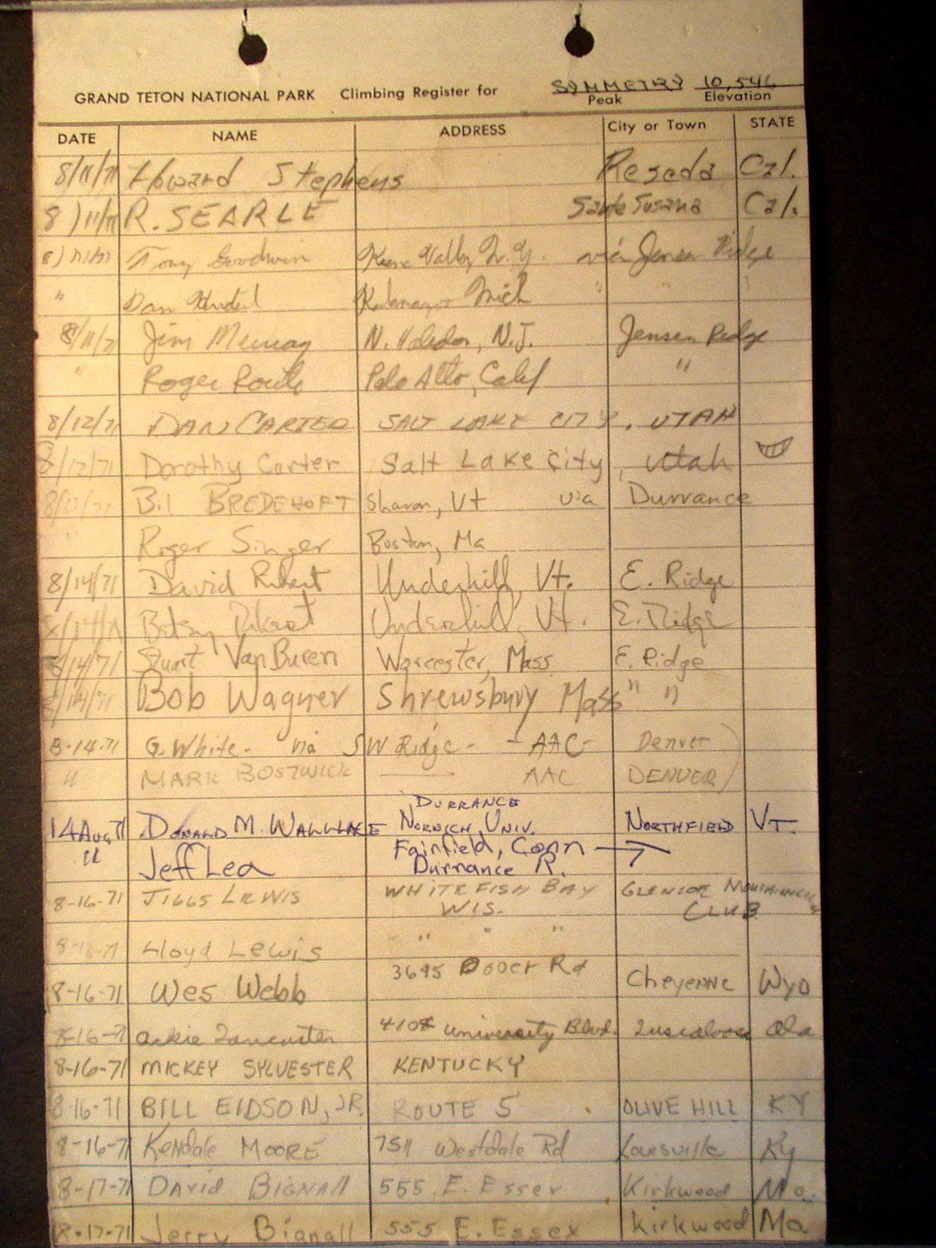 SYMMETRY 10,546
GRAND TETON NATIONAL PARK Climbing Register for Peak Elevation
DATE NAME ADDRESS City or Town STATE
8/11/71 Howard Stephens Reseda Cal.
8/11/71 R. SEARLE Santa Susana Cal.
8/11/71 Tony Goodwin Keene Valley, N.Y. via Jensen Ridge
" Dan Kalamazoo Mich " " "
8/11/71 Jim Murray N. Haledon, N.J. Jensen Ridge
" Roger Palo Alto, Calif "
8/12/71 DAN CARTER SALT LAKE CITY, UTAH
8/12/71 Dorothy Carter Salt Lake City, Utah
8/13/71 Bil BREDEHOFT Sharon, Vt via Durrance
" Roger Singer Boston, Ma
8/14/71 David Underhill, Vt. E. Ridge
8/14/71 Betsy Underhill, Vt. E. Ridge
8/14/71 Stuart Van Buren Worcester, Mass E. Ridge
8/14/71 Bob Wagner Shrewsbury Mass " "
8-14-71 G. White - via SW Ridge - - AAC - Denver
" MARK BOSTWICK AAC DENVER
DURRANCE
14 Aug 71 DONALD M. WALLACE NORWICH UNIV. NORTHFIELD VT.
" Jeff Lea Fairfield, Conn
Durrance R.
8-16-71 JIGGS LEWIS WHITEFISH BAY
WIS. CLUB
8-16-71 Lloyd Lewis " " "
8-16-71 Wes Webb 3645 Dover Rd Cheyenne Wyo
8-16-71 Lancaster 4108 University Blvd. Tuscaloosa Ala
8-16-71 MICKEY SYLVESTER KENTUCKY
8-16-71 BILL EIDSON, JR. ROUTE 5 OLIVE HILL KY
8-16-71 Kendale MOORE 7511 Westdale Rd Louisville Ky
8-17-71 DAVID BIGNALL 555 E. Essex Kirkwood Mo.
8-17-71 Jerry Bignall 555 E. Essex Kirkwood Mo